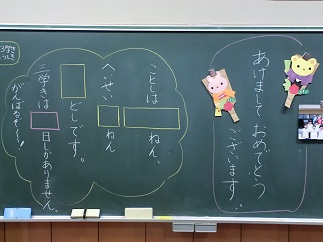 あけまして おめでとう
ございます。
ことしは
ねん、
へいせい
ねん
どしです。
三学きは
日しかありません。
がんばるぞ~!